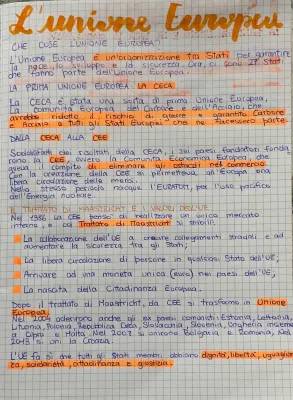 L'unione Europea
CHE COSE L'UNIONE EUROPEA?
L'Unione Europea è un'organizzazione tra Stati per garantire
la pace, lo sviluppo e la sicurezza. Ora, ci sono 27 Stati
che fanno parte dell'Unione Europea.
LA PRIMA UNIONE EUROPEA: LA CECA
La CECA è stata una sorta di prima Unione Europea,
La comunità Europea del Carbone e dell'Acciaio, che
avrebbe ridotto il rischio di guerre e garantito Carbone
e Acciaio a tutti gli Stati Europei che ne facessero parte.
DALLA CECA ALLA CEE
Soddisfatti dei risultati della CECA, i sei paesi fondatori fonda
rono la CEE, ovvero la Comunità Economica Europea, che
aveva il compito di eliminare gli ostacoli nel commercio.
Con la creazione della CEE si permetteva all'Europa una
libera circolazione delle merci.
Nello stesso periodo nacque l'EURATOM, per l'uso pacifico
dell'Energia nucleare.
IL TRATTATO DI MAASTRICHT E I VALORI DELL'UE
Nel 1986 la CEE pensò di realizzare un unico mercato
interno, e col Trattato di Maastricht si stabilì:
La collaborazione dell'UE a creare collegamenti stradali e ad
aumentare la sicurezza tra gli Stati;
La libera circolazione di persone in qualsiasi Stato dell'UE;
Arrivare ad una moneta unica (euro) nei paesi dell'UE;
La nascita della Cittadinanza Europea.
Dopo il trattato di Maastricht, da CEE si trasforma in Unione
Europea.
Nel 2004 aderirono anche gli ex paesi comunisti: Estonia, Lettonia,
Lituania, Polonia, Repubblica Ceca, Slovacchia, Slovenia, Ungheria insieme
a Cipro e Malta. Nel 2007 si unirono Bulgaria e Romania, Nel
2013 si unì la Croazia.
L'UE fa sì che tutti gli Stati membri abbiano dignità, libertà, uguaglian
za, solidarietà, cittadinanza e giustizia.